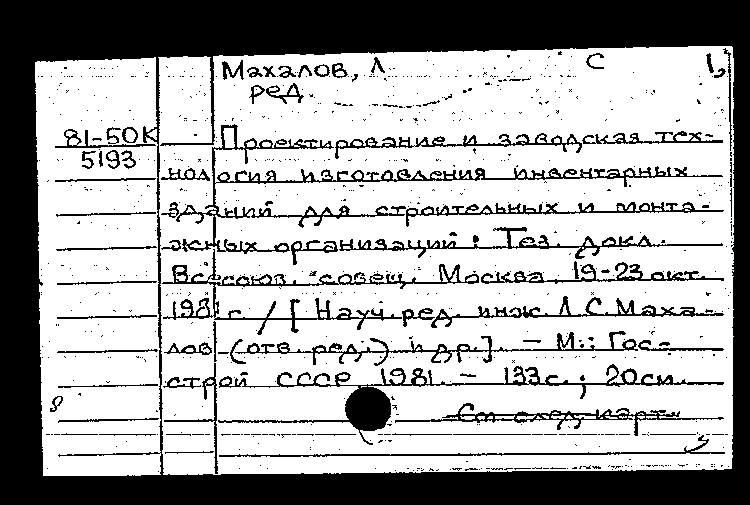 Махалов, Л С
ред.
81-50К Проектирование и заводская тех-
5193
нология изготовления инвентарных
зданий для строительных и монта-
жных организаций: Тез. докл.
Всесоюз. совещ. Москва 19-23 окт.
1981г / [Науч. ред. инж. Л.С. Маха-
лов (отв. ред.) и др.]. - М.: Гос-
строй СССР 1981. - 133с.; 20см.
8
См след карт